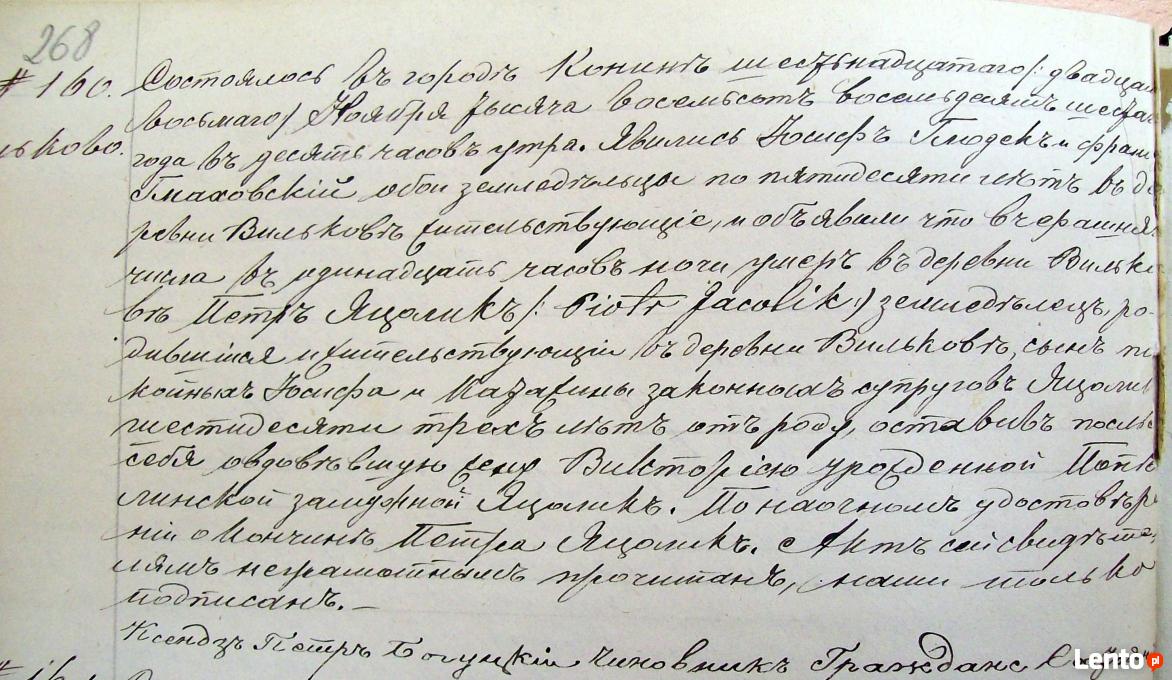 268
# 160. Состоялось въ городѣ Конинѣ шестьнадцатаго /: двадцат
восьмаго / Ноября тысяча восемьсотъ восемьдесятъ шестаго
ьково. года въ десять часовъ утра. Явились Іосифъ Глодекъ и Фран
Глаховскій обои земледѣльцы по пятидесяти лѣтъ въ де
ревни Вильковѣ жительствующіе, и объявили что вчерашня
числа въ одинадцать часовъ ночи умеръ въ деревни Вилько
вѣ Петръ Яцоликъ /: Piotr Jacolik :/ земледѣлецъ, ро-
дившійся и жительствующій въ деревни Вильковѣ, сынъ по
койныхъ Іосифа и Катарины законныхъ супруговъ Яцолик
шестидесяти трехъ лѣтъ отъ роду, оставивъ послѣ
себя овдовѣвшую жену Викторію урожденной
линской замужной Яцоликъ. По наочномъ удостовѣре
ніи о кончинѣ Петра Яцоликъ. Актъ сей свидѣте
лямъ неграмотнымъ прочитанъ, нами только
подписанъ. —
Ксендзъ Петръ чиновникъ Гражданс
# 161
Lento.pl